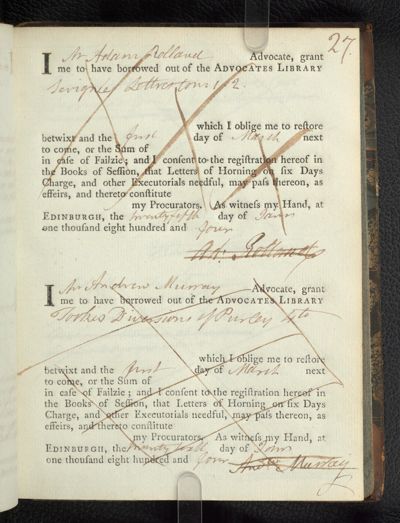 27.
I Mr Adam Rolland Advocate, grant
me to have borrowed out of the ADVOCATES LIBRARY
Sevignes Lettres tom 1, 2.
betwixt and the first which I oblige me to reſtore
day of March next
to come, or the Sum of
in caſe of Failzie; and I conſent to the regiſtration hereof in
the Books of Seſſion, that Letters of Horning on ſix Days
Charge, and other Executorials needful, may paſs thereon, as
effeirs, and thereto conſtitute
my Procurators. As witneſs my Hand, at
EDINBURGH, the twenty fifth day of Janry
one thouſand eight hundred and four
Ad: Rolland
I Mr Andrew Murray Advocate, grant
me to have borrowed out of the ADVOCATES LIBRARY
Tookes Diversions of Purley 4to
which I oblige me to reſtore
betwixt and the first day of March next
to come, or the Sum of
in caſe of Failzie; and I conſent to the regiſtration hereof in
the Books of Seſſion, that Letters of Horning on ſix Days
Charge, and other Executorials needful, may paſs thereon, as
effeirs, and thereto conſtitute
my Procurators. As witneſs my Hand, at
EDINBURGH, the twenty day of Janry
one thouſand eight hundred and four
Andw Murray